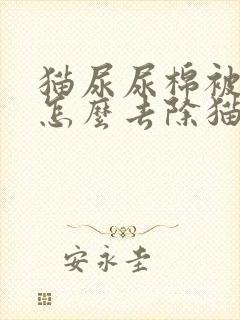 猫尿尿棉被
怎麼去除猫
安永圭